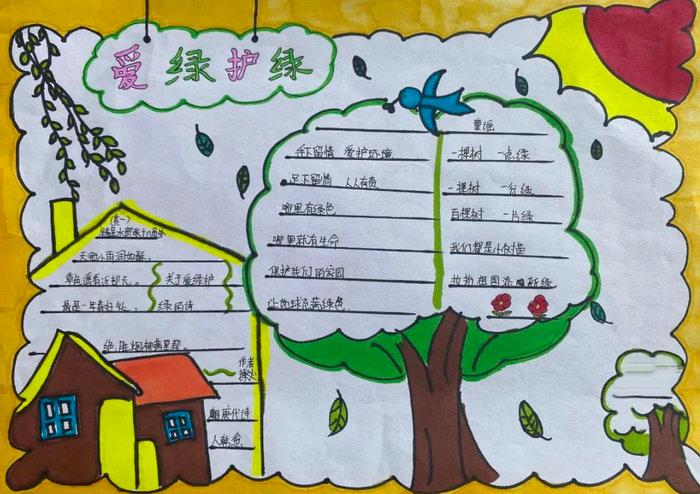 爱绿护绿
(其一)
早春呈水部张十八员外
天街小雨润如酥,
草色遥看近却无。
最是一年春好处,
绝胜烟柳满皇都。
关于爱绿护
绿的诗
作者
朝唐代诗
人韩愈
手下留情 爱护环境
足下留情 人人有责
哪里有绿色
哪里就有生命
保护我们的家园
让地球充满绿色.
童谣
一棵树 一点绿
一棵树 一分绿
百棵树 一片绿
我们都是小树苗
妆扮祖国添新绿